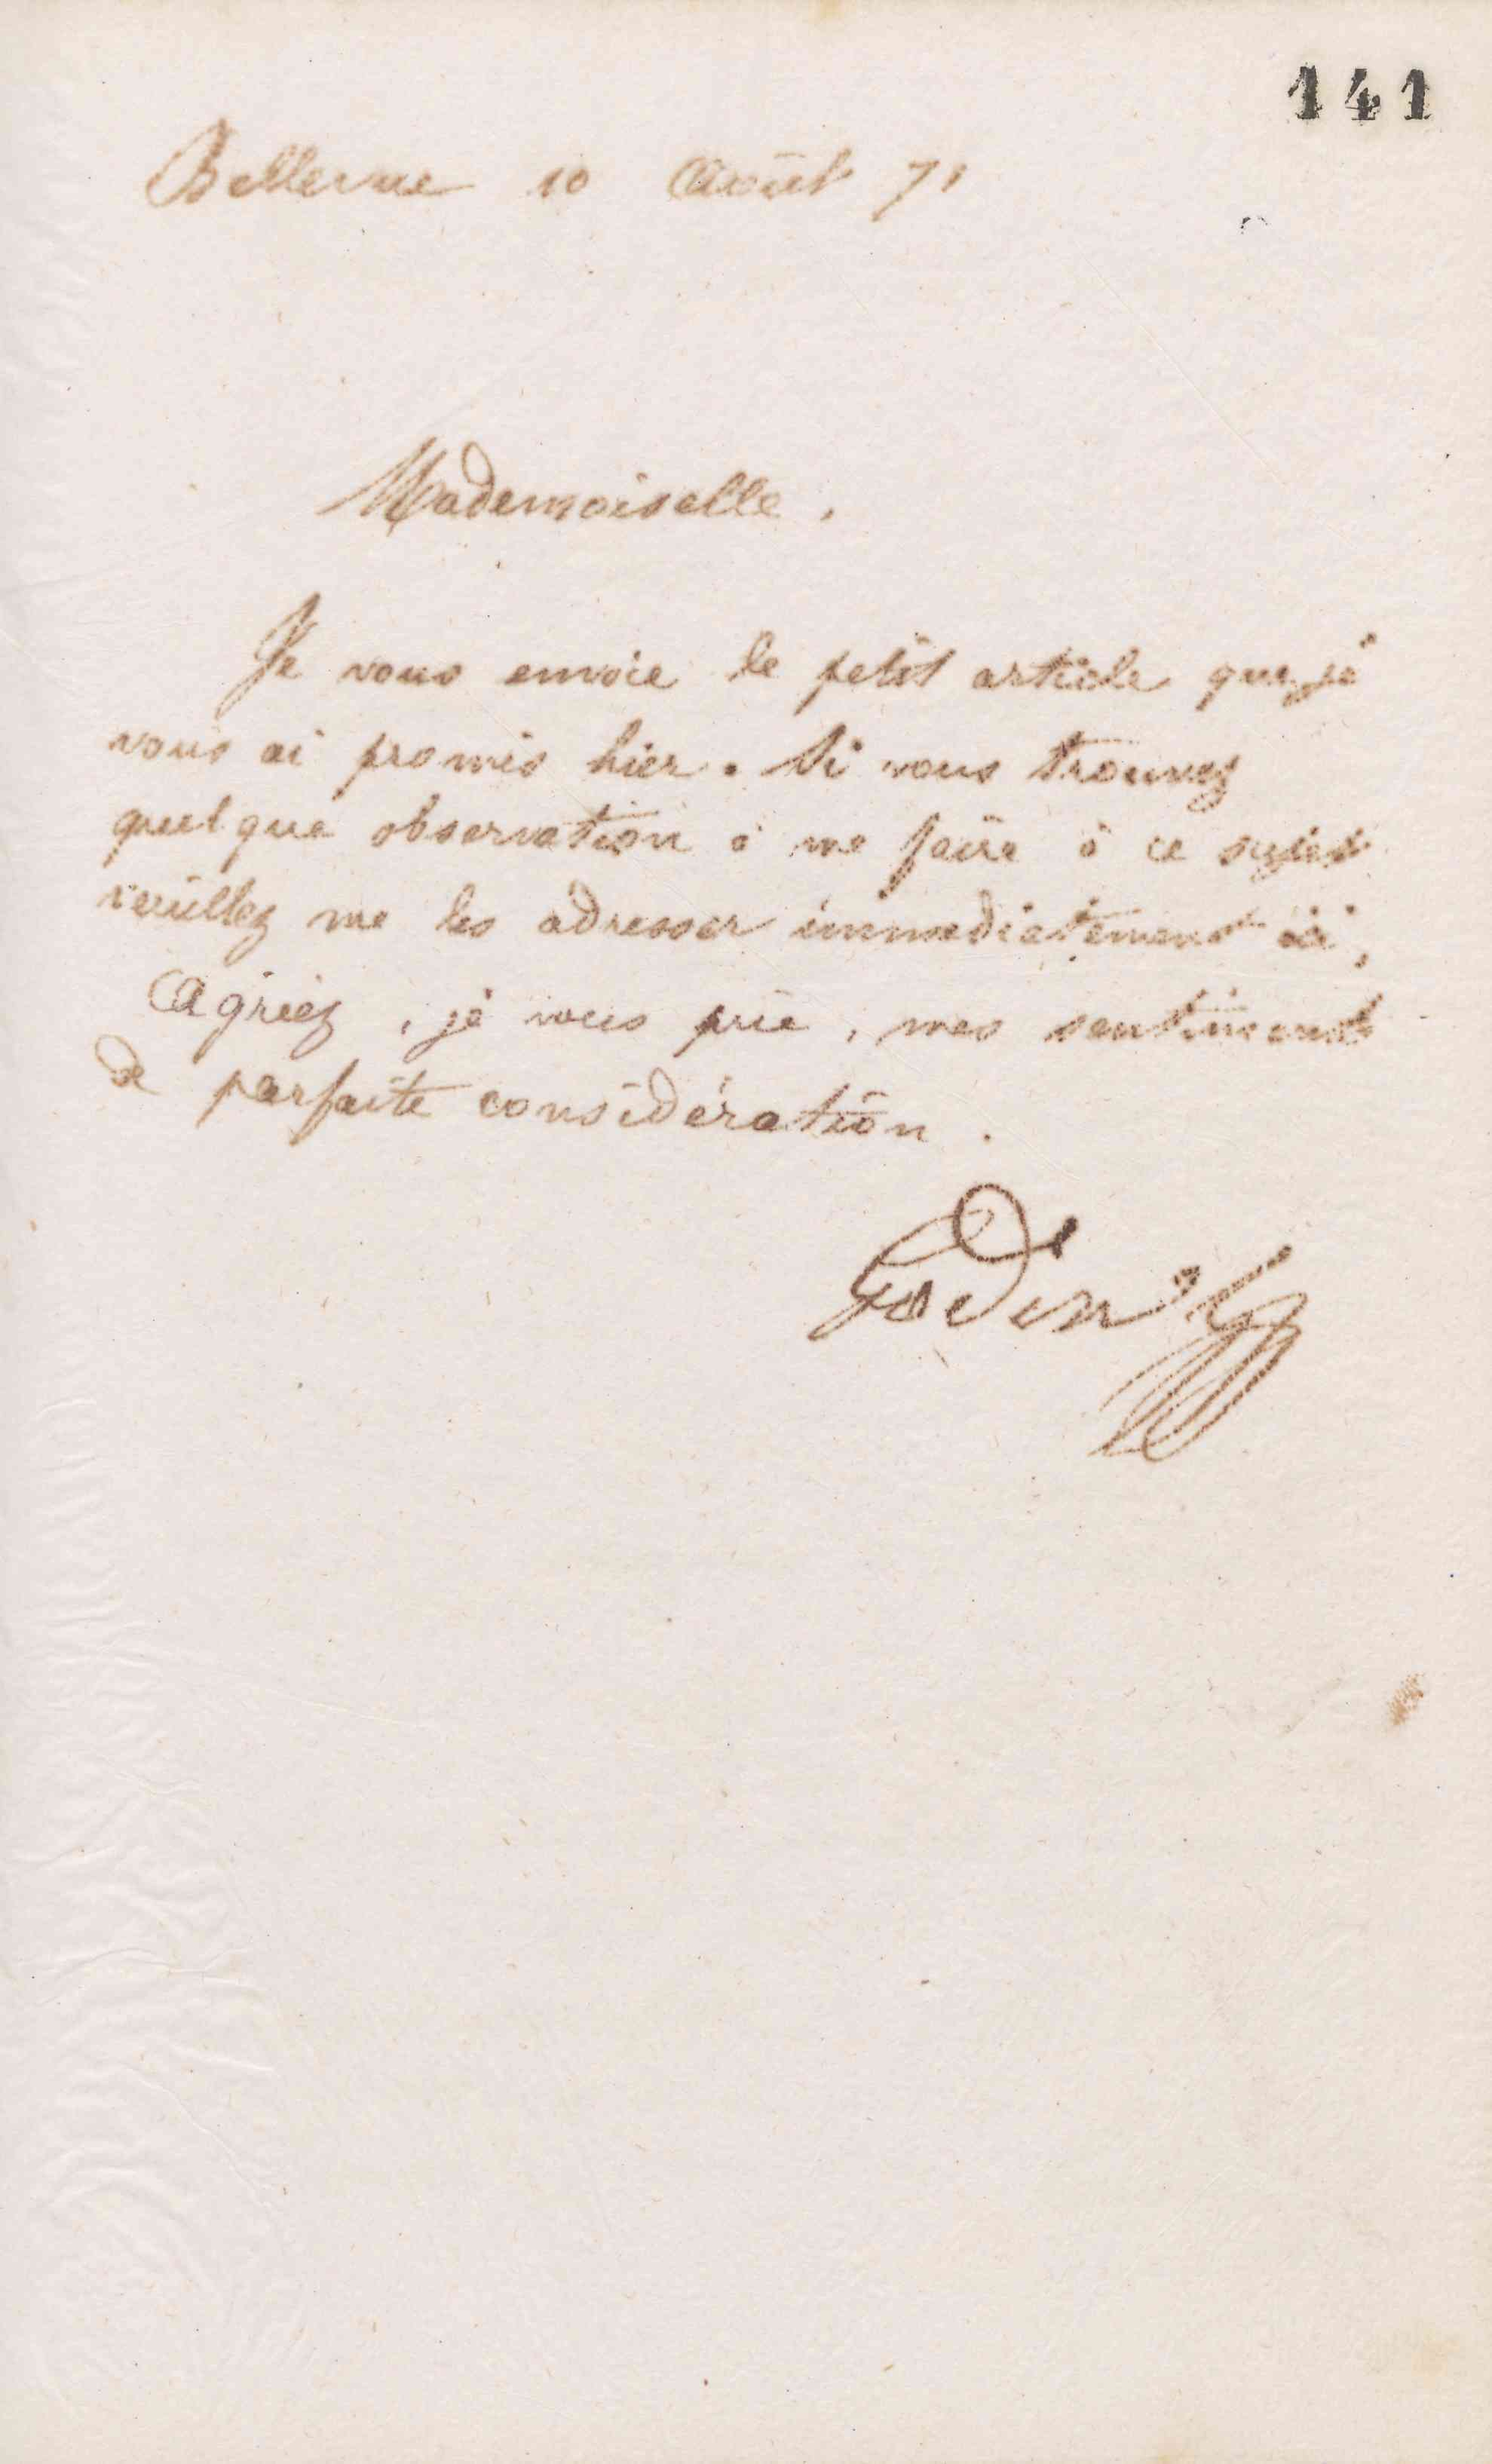 141
Bellevue 10 Août 71
Mademoiselle,
Je vous envoie le petit article que je
vous ai promis hier. Si vous trouvez
quelque observation à me faire à ce sujet
veuillez me les adresser immédiatement ici,
Agréez, je vous prie, mes sentiments
de parfaite considération.
Godin